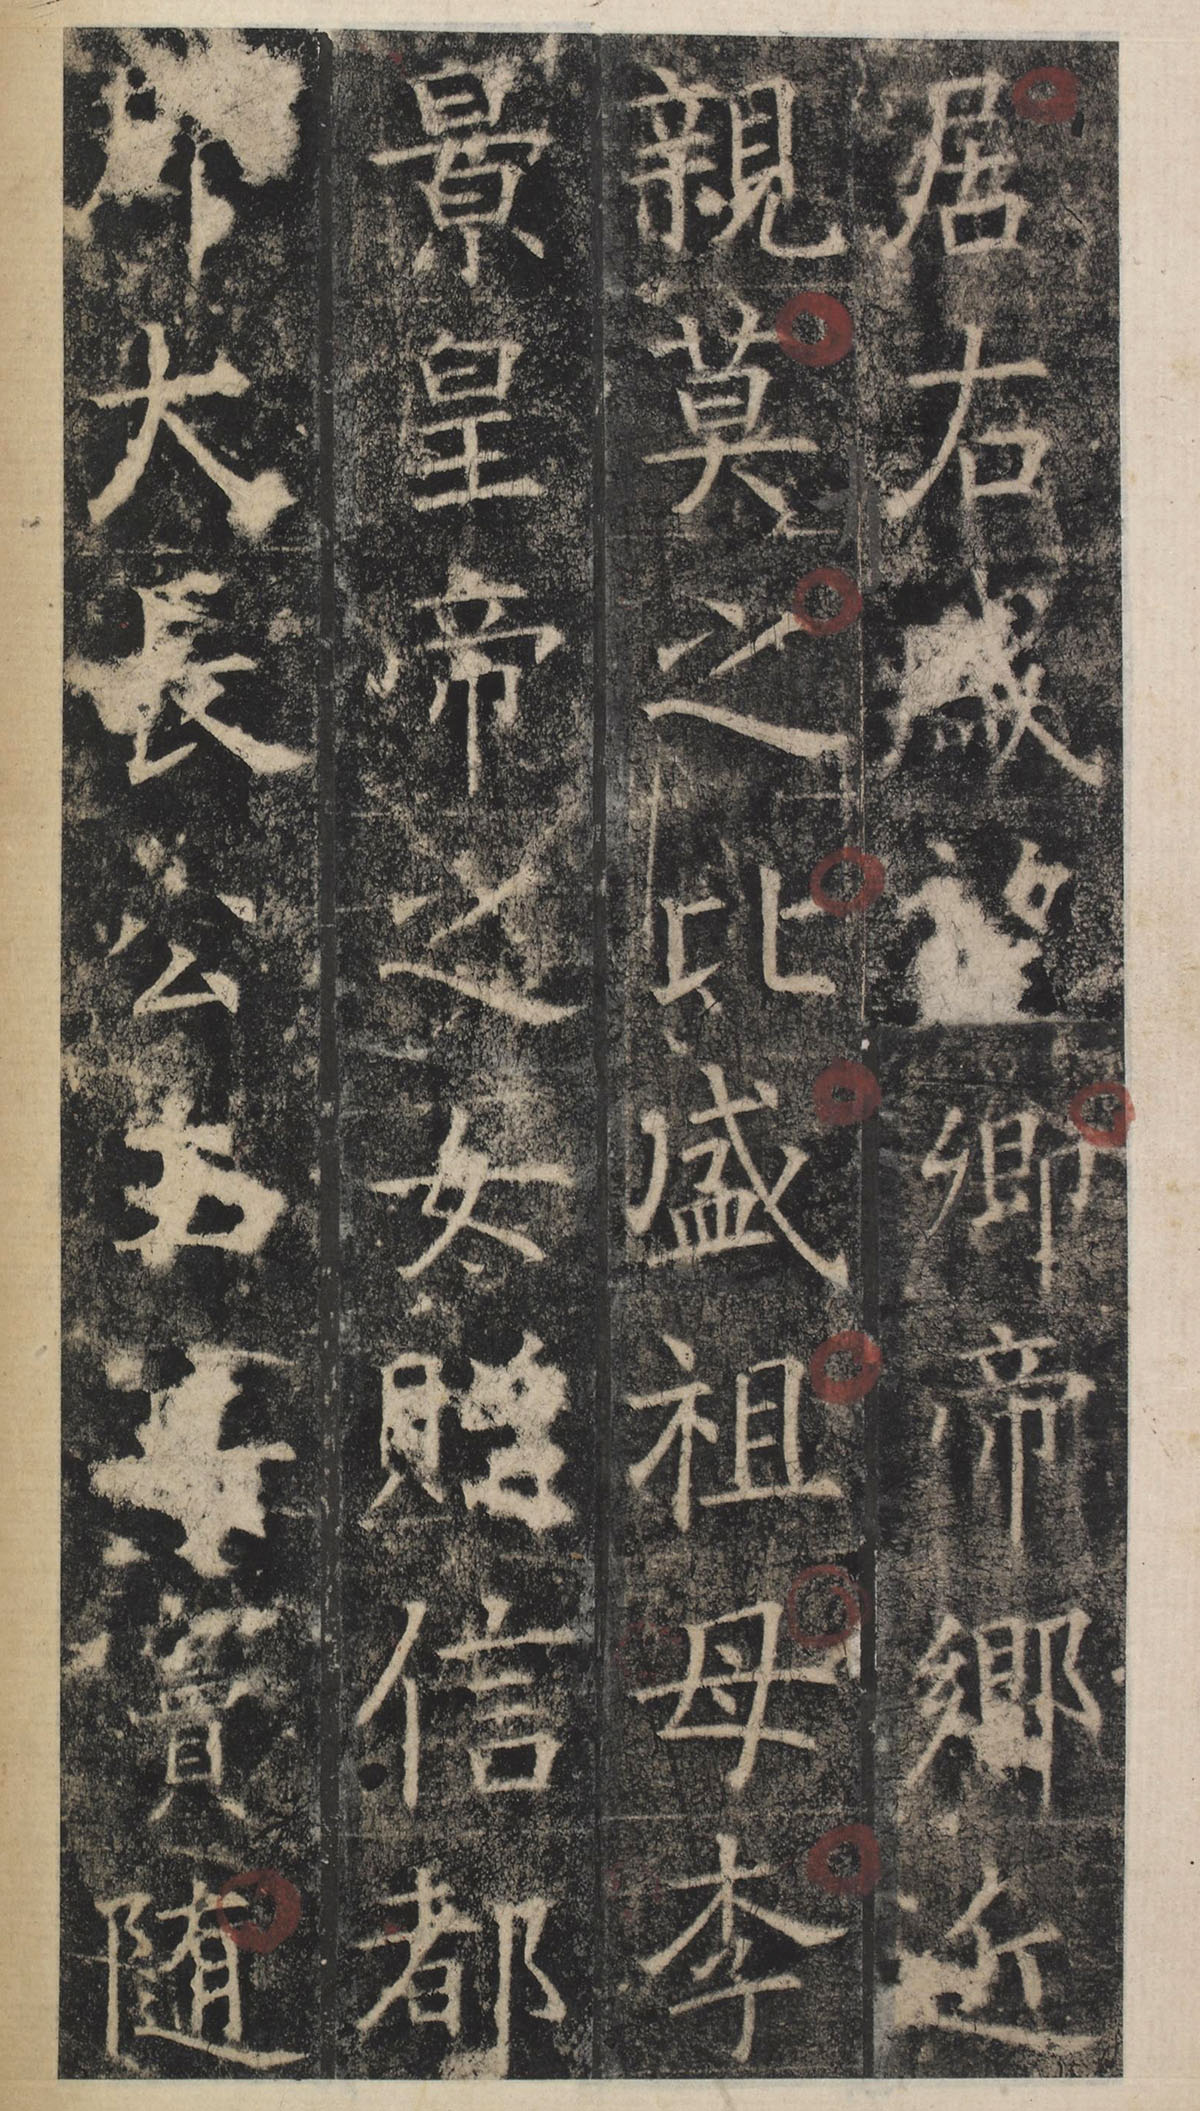 居右戚卿帝鄉近
親莫之比盛祖母李
景皇帝之女贈信都
大長公隨